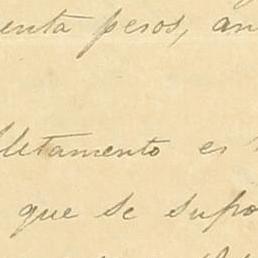 enta pesos, an
letamento es
que se supo